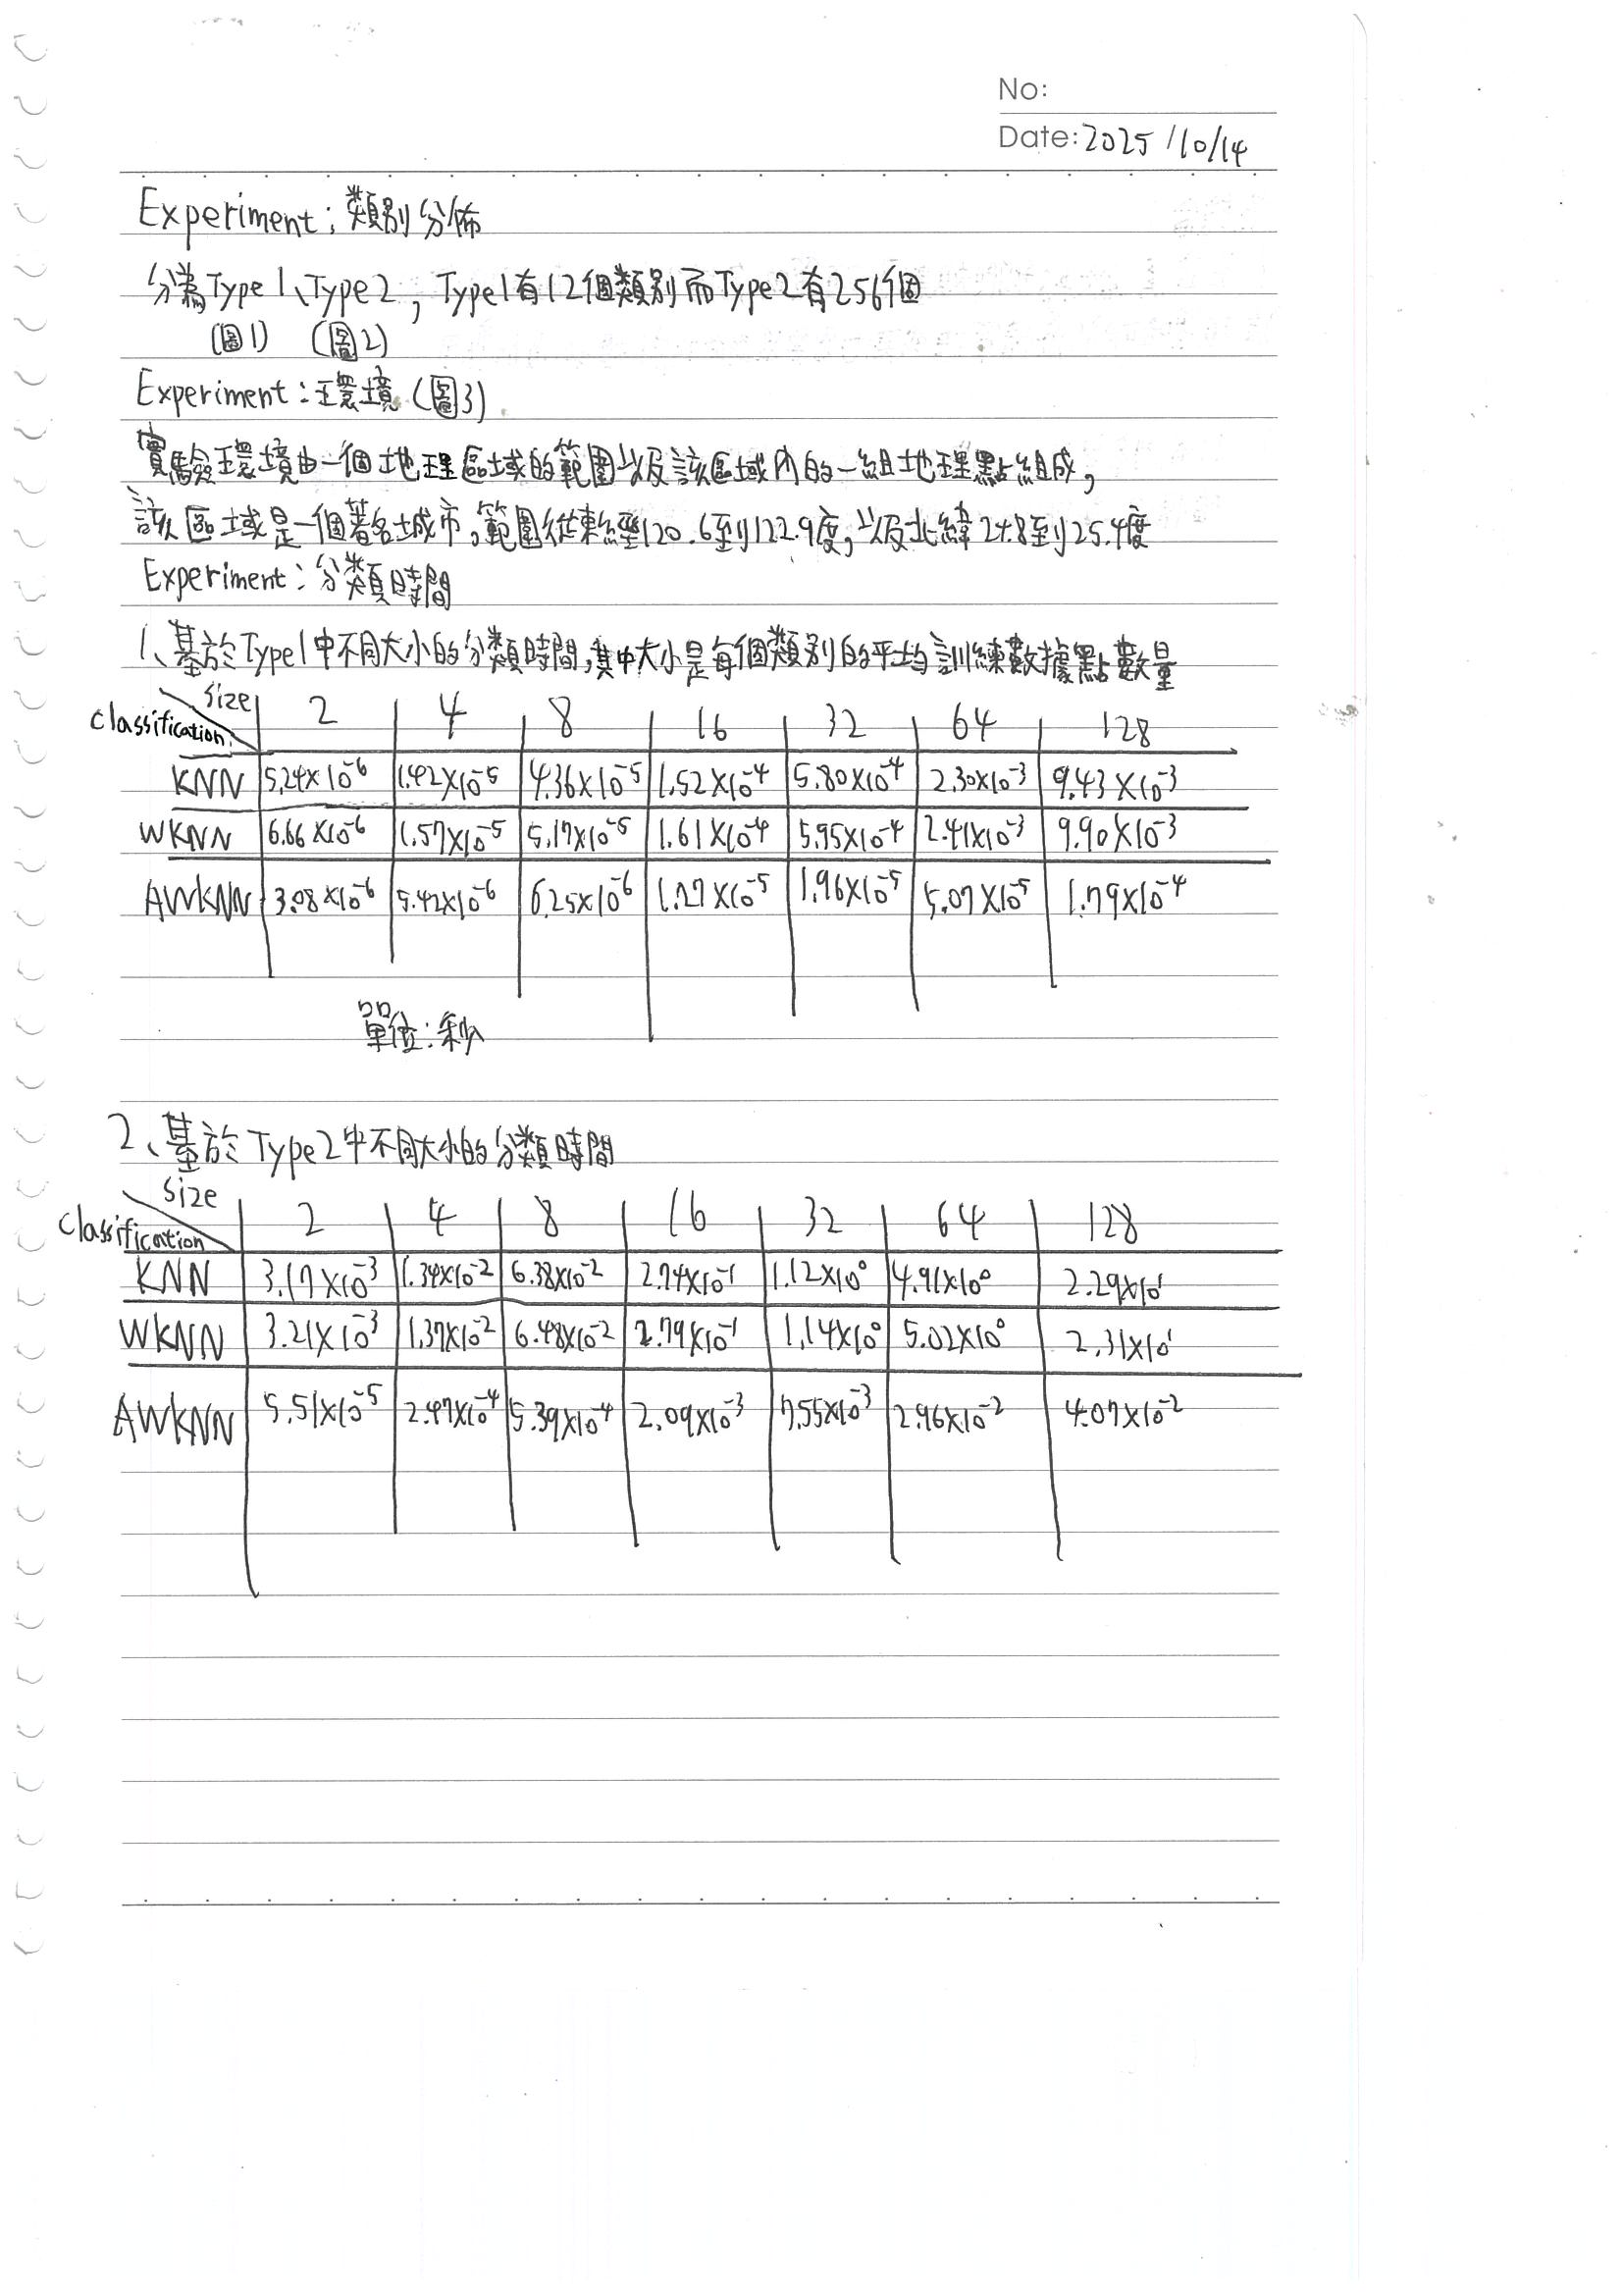 No:
Date: 2025/10/14
Experiment: 類別分佈
分為Type1、Type2, Type1有12個類別而Type2有256個
(圖1) (圖2)
Experiment: 環境 (圖3)
實驗環境由一個地理區域的範圍以及該區域內的一組地理點組成,
該區域是一個著名城市,範圍從東經120.6到122.9度,以及北緯24.8到25.4度
Experiment: 分類時間
1、基於Type1中不同大小的分類時間,其中大小是每個類別的平均訓練數據點數量
size 2 4 8 16 32 64 128
classification
KNN 5.24×10⁻⁶ 1.42×10⁻⁵ 4.36×10⁻⁵ 1.52×10⁻⁴ 5.80×10⁻⁴ 2.30×10⁻³ 9.43×10⁻³
WKNN 6.66×10⁻⁶ 1.57×10⁻⁵ 5.17×10⁻⁵ 1.61×10⁻⁴ 5.95×10⁻⁴ 2.41×10⁻³ 9.90×10⁻³
AWKNN 3.08×10⁻⁶ 5.42×10⁻⁶ 6.25×10⁻⁶ 1.27×10⁻⁵ 1.96×10⁻⁵ 5.07×10⁻⁵ 1.79×10⁻⁴
單位:秒
2、基於Type2中不同大小的分類時間
size 2 4 8 16 32 64 128
classification
KNN 3.17×10⁻³ 1.34×10⁻² 6.38×10⁻² 2.74×10⁻¹ 1.12×10⁰ 4.91×10⁰ 2.29×10¹
WKNN 3.21×10⁻³ 1.37×10⁻² 6.48×10⁻² 2.79×10⁻¹ 1.14×10⁰ 5.02×10⁰ 2.31×10¹
AWKNN 5.51×10⁻⁵ 2.47×10⁻⁴ 5.39×10⁻⁴ 2.09×10⁻³ 7.55×10⁻³ 2.96×10⁻² 4.07×10⁻²